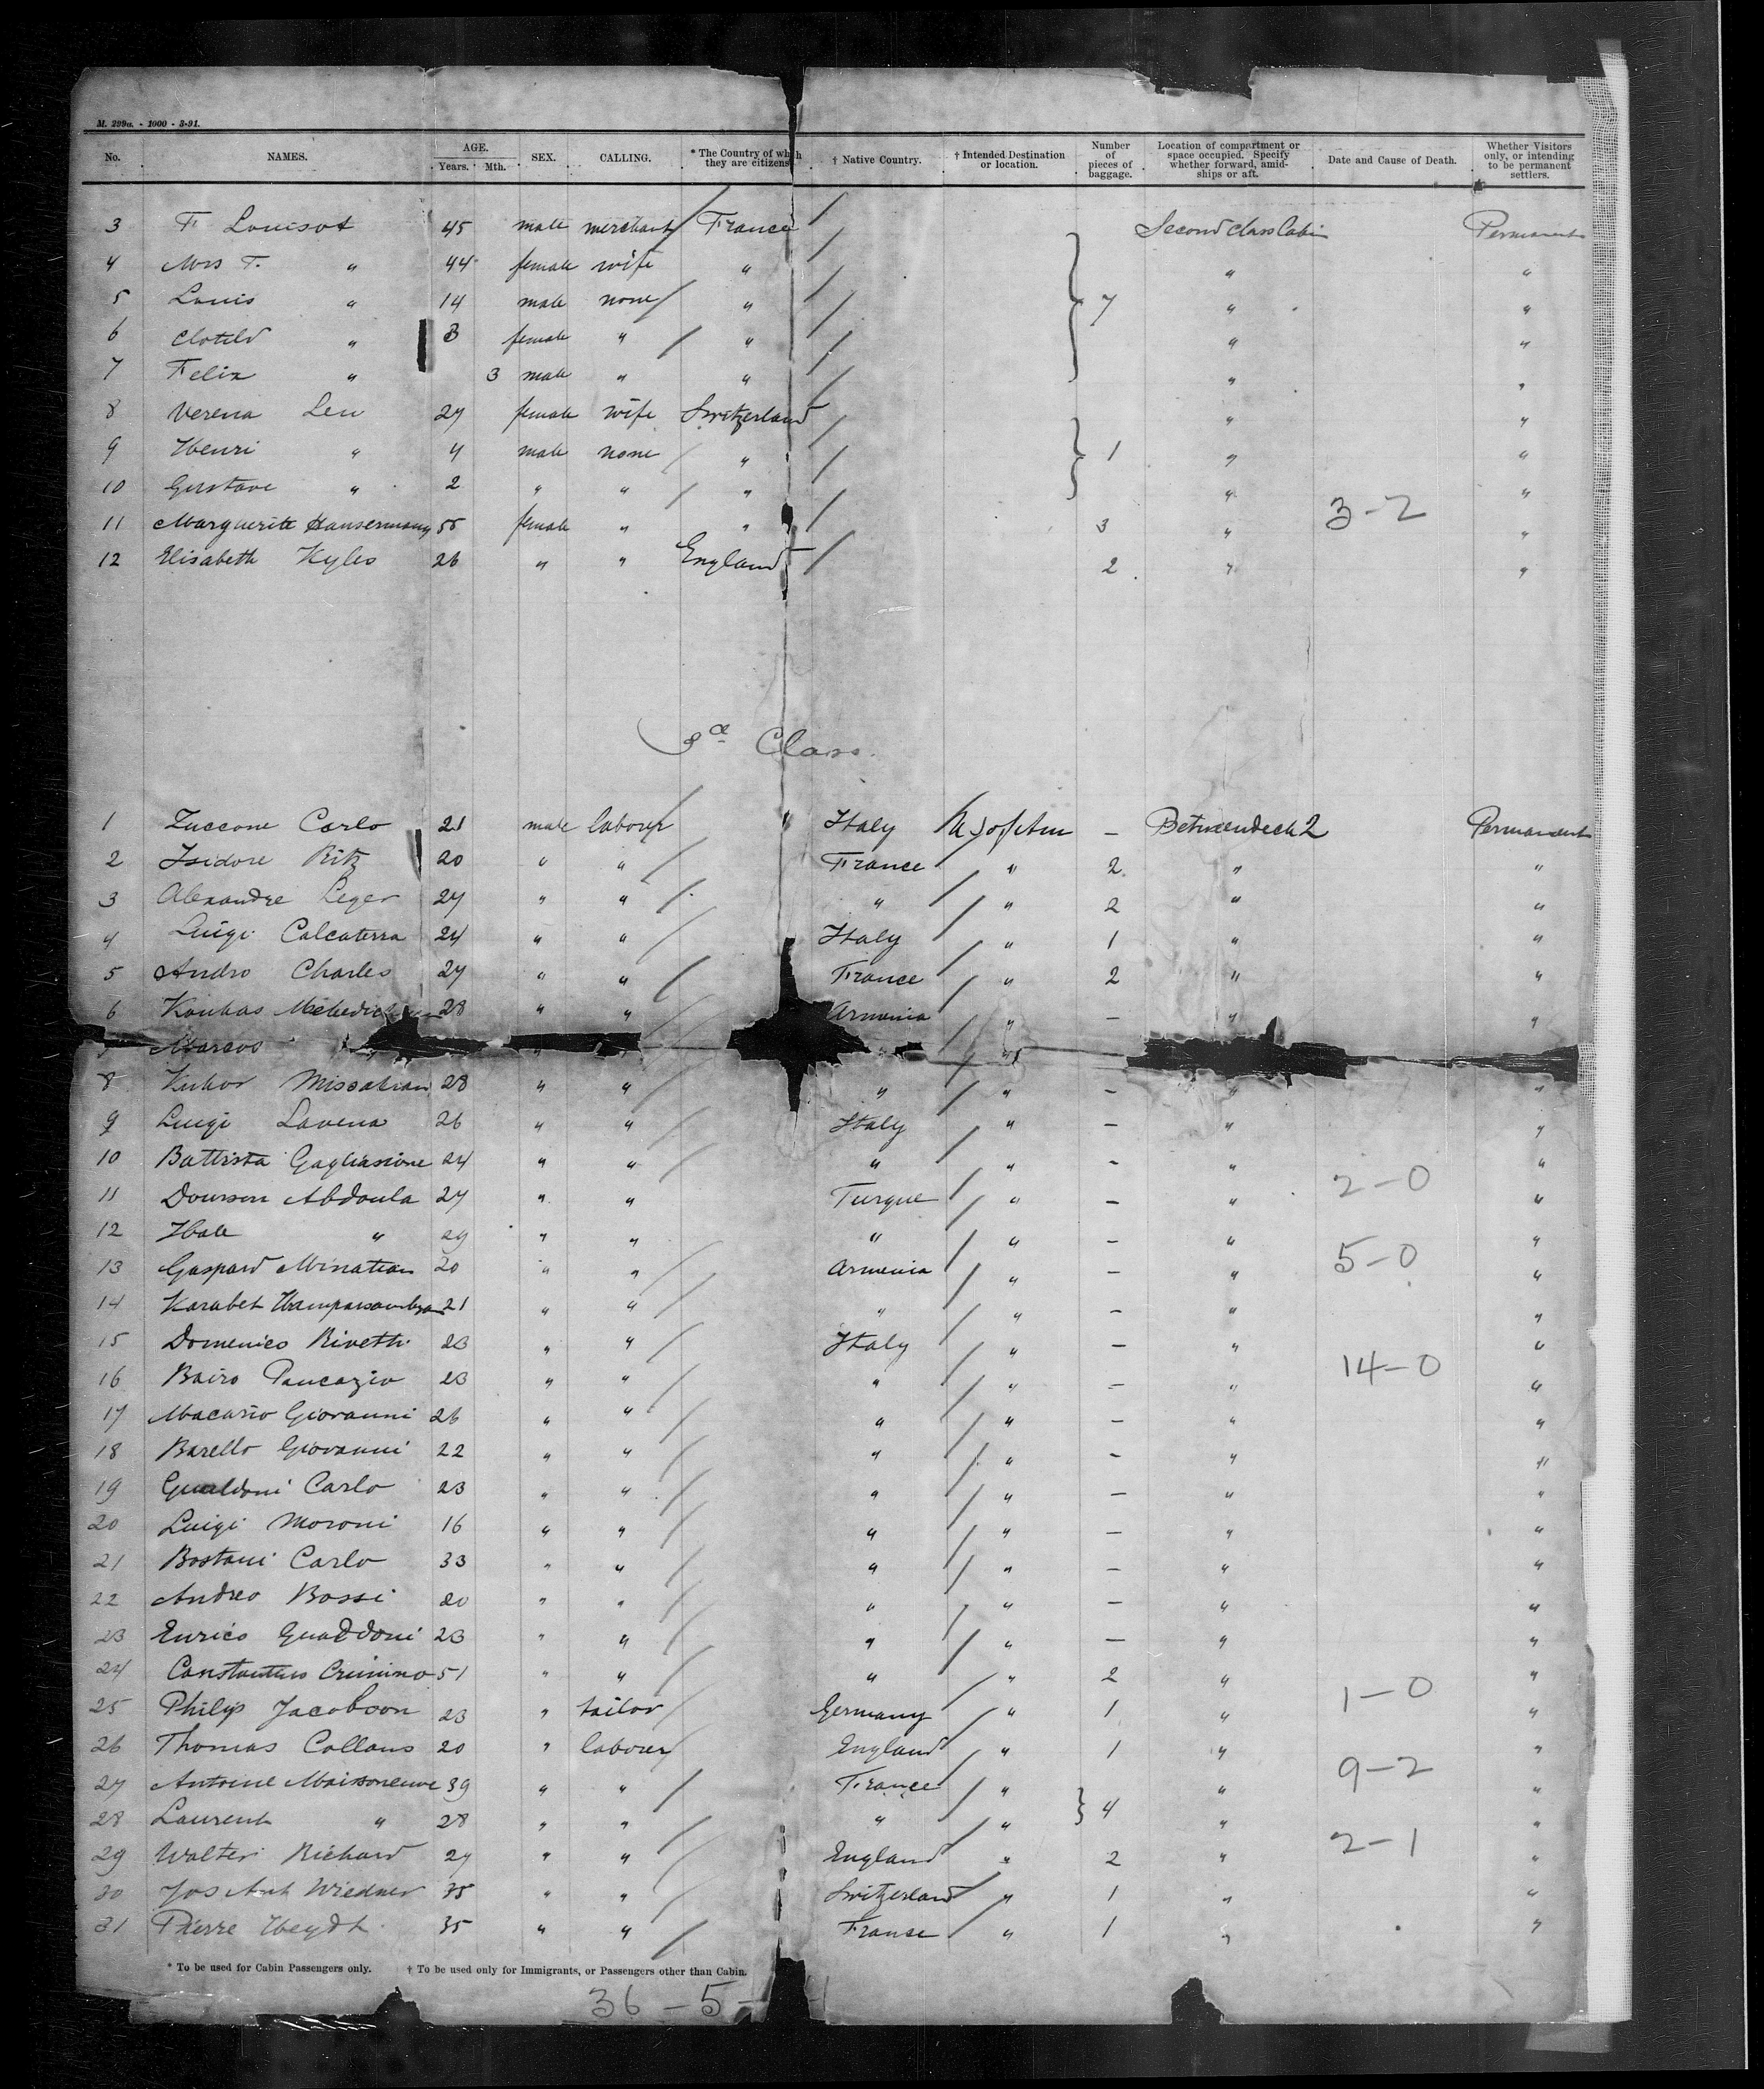 M. 299a. - 1000 - 3-91.
No. NAMES. AGE. Years. Mth. SEX. CALLING. * The Country of which they are citizens. † Native Country. † Intended Destination or location. Number of pieces of baggage. Location of compartment or space occupied. Specify whether forward, amidships or aft. Date and Cause of Death. Whether Visitors only, or intending to be permanent settlers.
3 F. Louisot 45 male merchant France Second Class Cabin Permanent
4 Mrs F. " 44 female wife " " "
5 Louis " 14 male none " 7 " "
6 Clotild " 3 female " " " "
7 Felix " 3 male " " " "
8 Verena Leu 27 female wife Switzerland " "
9 Henri " 4 male none " 1 " "
10 Gustave " 2 " " " " "
3-2
11 Marguerite Hausermann 55 female " " 3 " "
12 Elisabeth Kyles 26 " " England 2 " "
Class
1 Zuccone Carlo 21 male laborer Italy U S of Am — Betweendeck 2 Permanent
2 Isidore Ritz 20 " " France " 2 " "
3 Alexandre Leger 27 " " " " 2 " "
4 Luigi Calcaterra 24 " " Italy " 1 " "
5 Andro Charles 27 " " France " 2 " "
6 Koukas 28 " " Armenia " — " "
Marcos " "
8 Kukor Missakian 28 " " " " — " "
9 Luigi Lavena 26 " " Italy " — " "
10 Battista Gagliasione 24 " " " " — " "
2-0
11 Dourson Abdoula 27 " " Turque " — " "
12 Hale " 29 " " " " — " "
5-0
13 Gaspard Minatian 20 " " Armenia " — " "
14 Karabet 21 " " " " — " "
15 Domenico Rivetti 23 " " Italy " — " "
14-0
16 Bairo Pancazio 23 " " " " — " "
17 Macario Giovanni 26 " " " " — " "
18 Barello Giovanni 22 " " " " — " "
19 Gualdoni Carlo 23 " " " " — " "
20 Luigi Moroni 16 " " " " — " "
21 Bostani Carlo 33 " " " " — " "
22 Andreo Bossi 20 " " " " — " "
23 Enrico Guaddoni 23 " " " " — " "
24 Constantino Crimino 51 " " " " 2 " "
1-0
25 Philip Jacobson 23 " tailor Germany " 1 " "
26 Thomas Collans 20 " laborer England " 1 " "
9-2
27 Antoine Maisoneuve 39 " " France " " "
28 Laurent " 28 " " " " 4 " "
2-1
29 Walter Richard 27 " " England " 2 " "
30 Jos Ant Wiedner 35 " " Switzerland " 1 " "
31 Pierre Heydt 35 " " Franse " 1 " "
* To be used for Cabin Passengers only. † To be used only for Immigrants, or Passengers other than Cabin.
36-5-